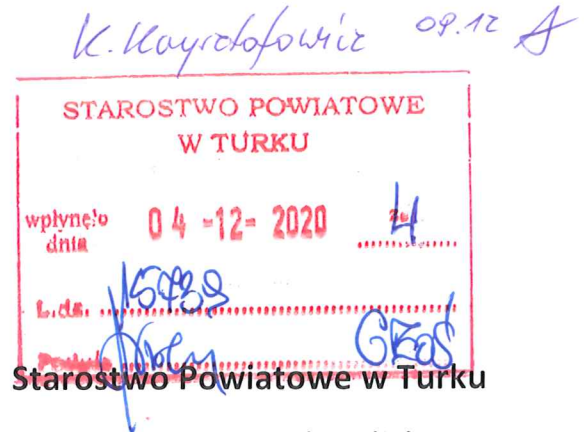 K. Krysztofowicz 09.12
STAROSTWO POWIATOWE
W TURKU
wpłynęło
dnia 04 -12- 2020 zał. 4
L.dz. 15739
Podpis GKoś
Starostwo Powiatowe w Turku